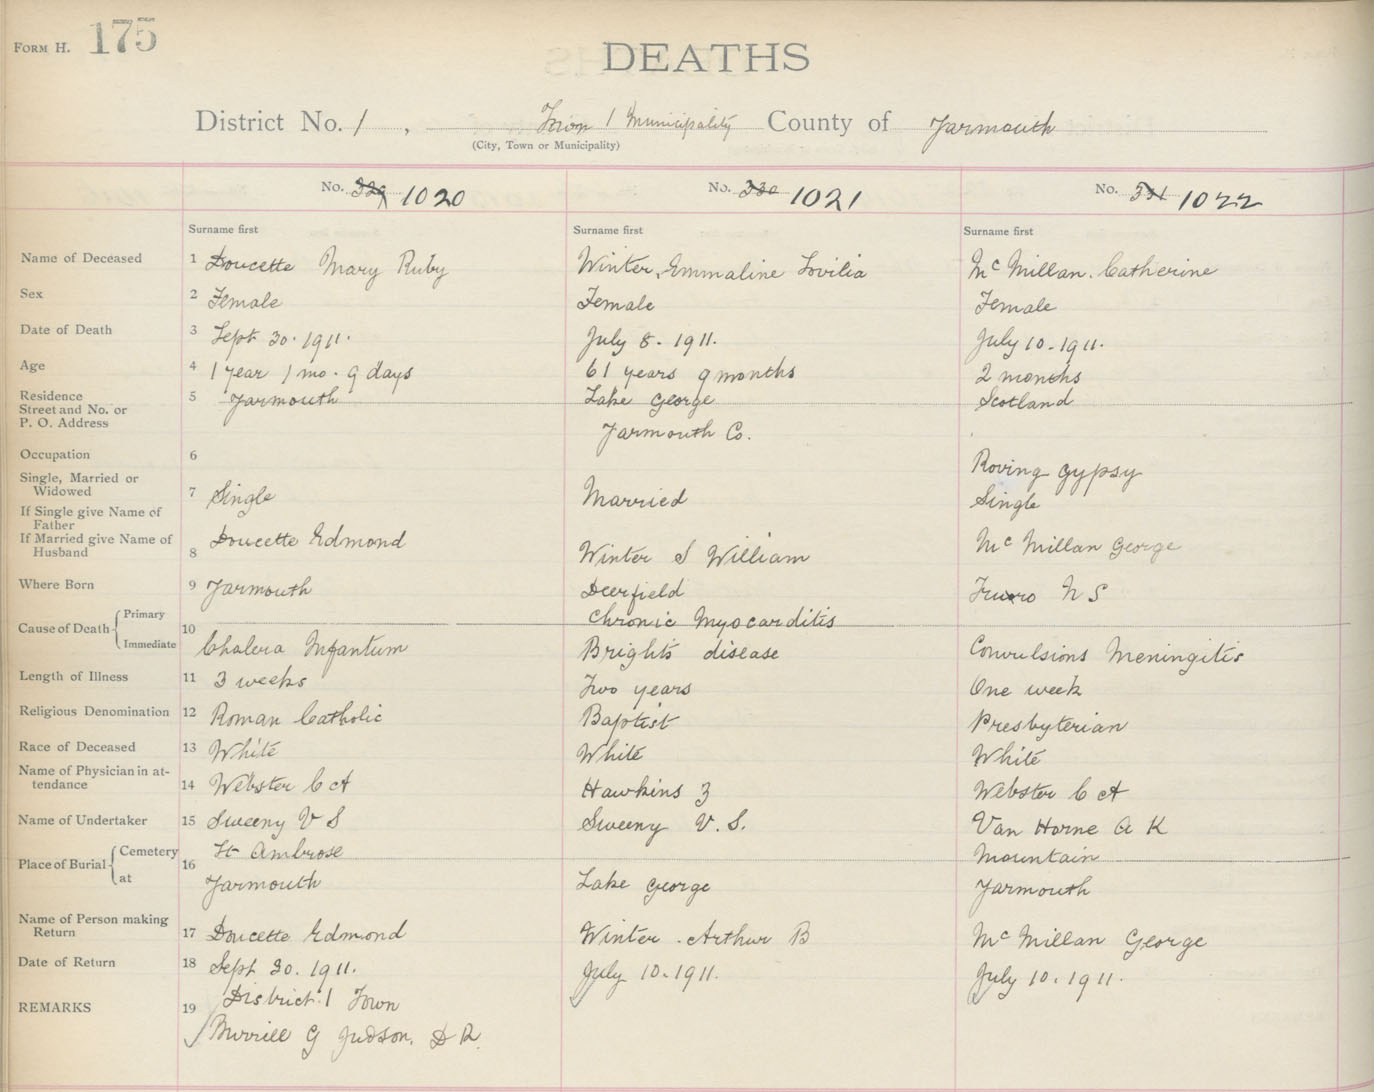 FORM H. 175
DEATHS
District No. 1 , Town / Municipality County of Yarmouth
(City, Town or Municipality)
No. 329 1020 No. 330 1021 No. 331 1022
Surname first Surname first Surname first
Name of Deceased 1 Doucette Mary Ruby Winter, Emmaline Lovilia Mc Millan. Catherine
Sex 2 Female Female Female
Date of Death 3 Sept 30. 1911. July 8. 1911. July 10. 1911.
Age 4 1 year 1 mo. 9 days 61 years 9 months 2 months
Residence 5 Yarmouth Lake George Scotland
Street and No. or
P. O. Address Yarmouth Co.
Occupation 6 Roving gypsy
Single, Married or
Widowed 7 Single Married Single
If Single give Name of
Father
If Married give Name of Doucette Edmond Mc Millan George
Husband 8 Winter S William
Where Born 9 Yarmouth Deerfield Truro N S
Cause of Death Primary 10 Chronic Myocarditis
Immediate Cholera Infantum Brights disease Convulsions Meningitis
Length of Illness 11 3 weeks Two years One week
Religious Denomination 12 Roman Catholic Baptist Presbyterian
Race of Deceased 13 White White White
Name of Physician in at-
tendance 14 Webster C A Hawkins Z Webster C A
Name of Undertaker 15 Sweeny V S Sweeny V. S. Van Horne A K
Place of Burial Cemetery 16 St Ambrose Mountain
at Yarmouth Lake George Yarmouth
Name of Person making
Return 17 Doucette Edmond Winter. Arthur B Mc Millan George
Date of Return 18 Sept 30. 1911. July 10. 1911. July 10. 1911.
REMARKS 19 District. 1 Town
Murrill G Judson. D R.